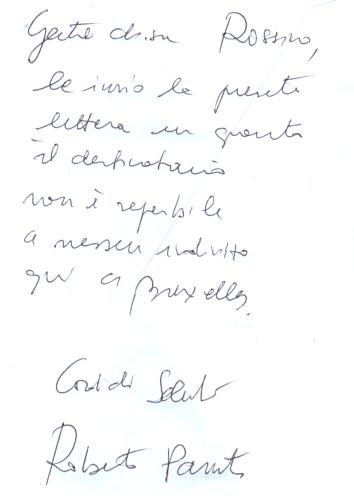 Rossino,
le invio la presente
lettera in quanto
il destinatario
non è reperibile
a nessun indirizzo
qui a Bruxelles.
Cordiali Saluti
Roberto